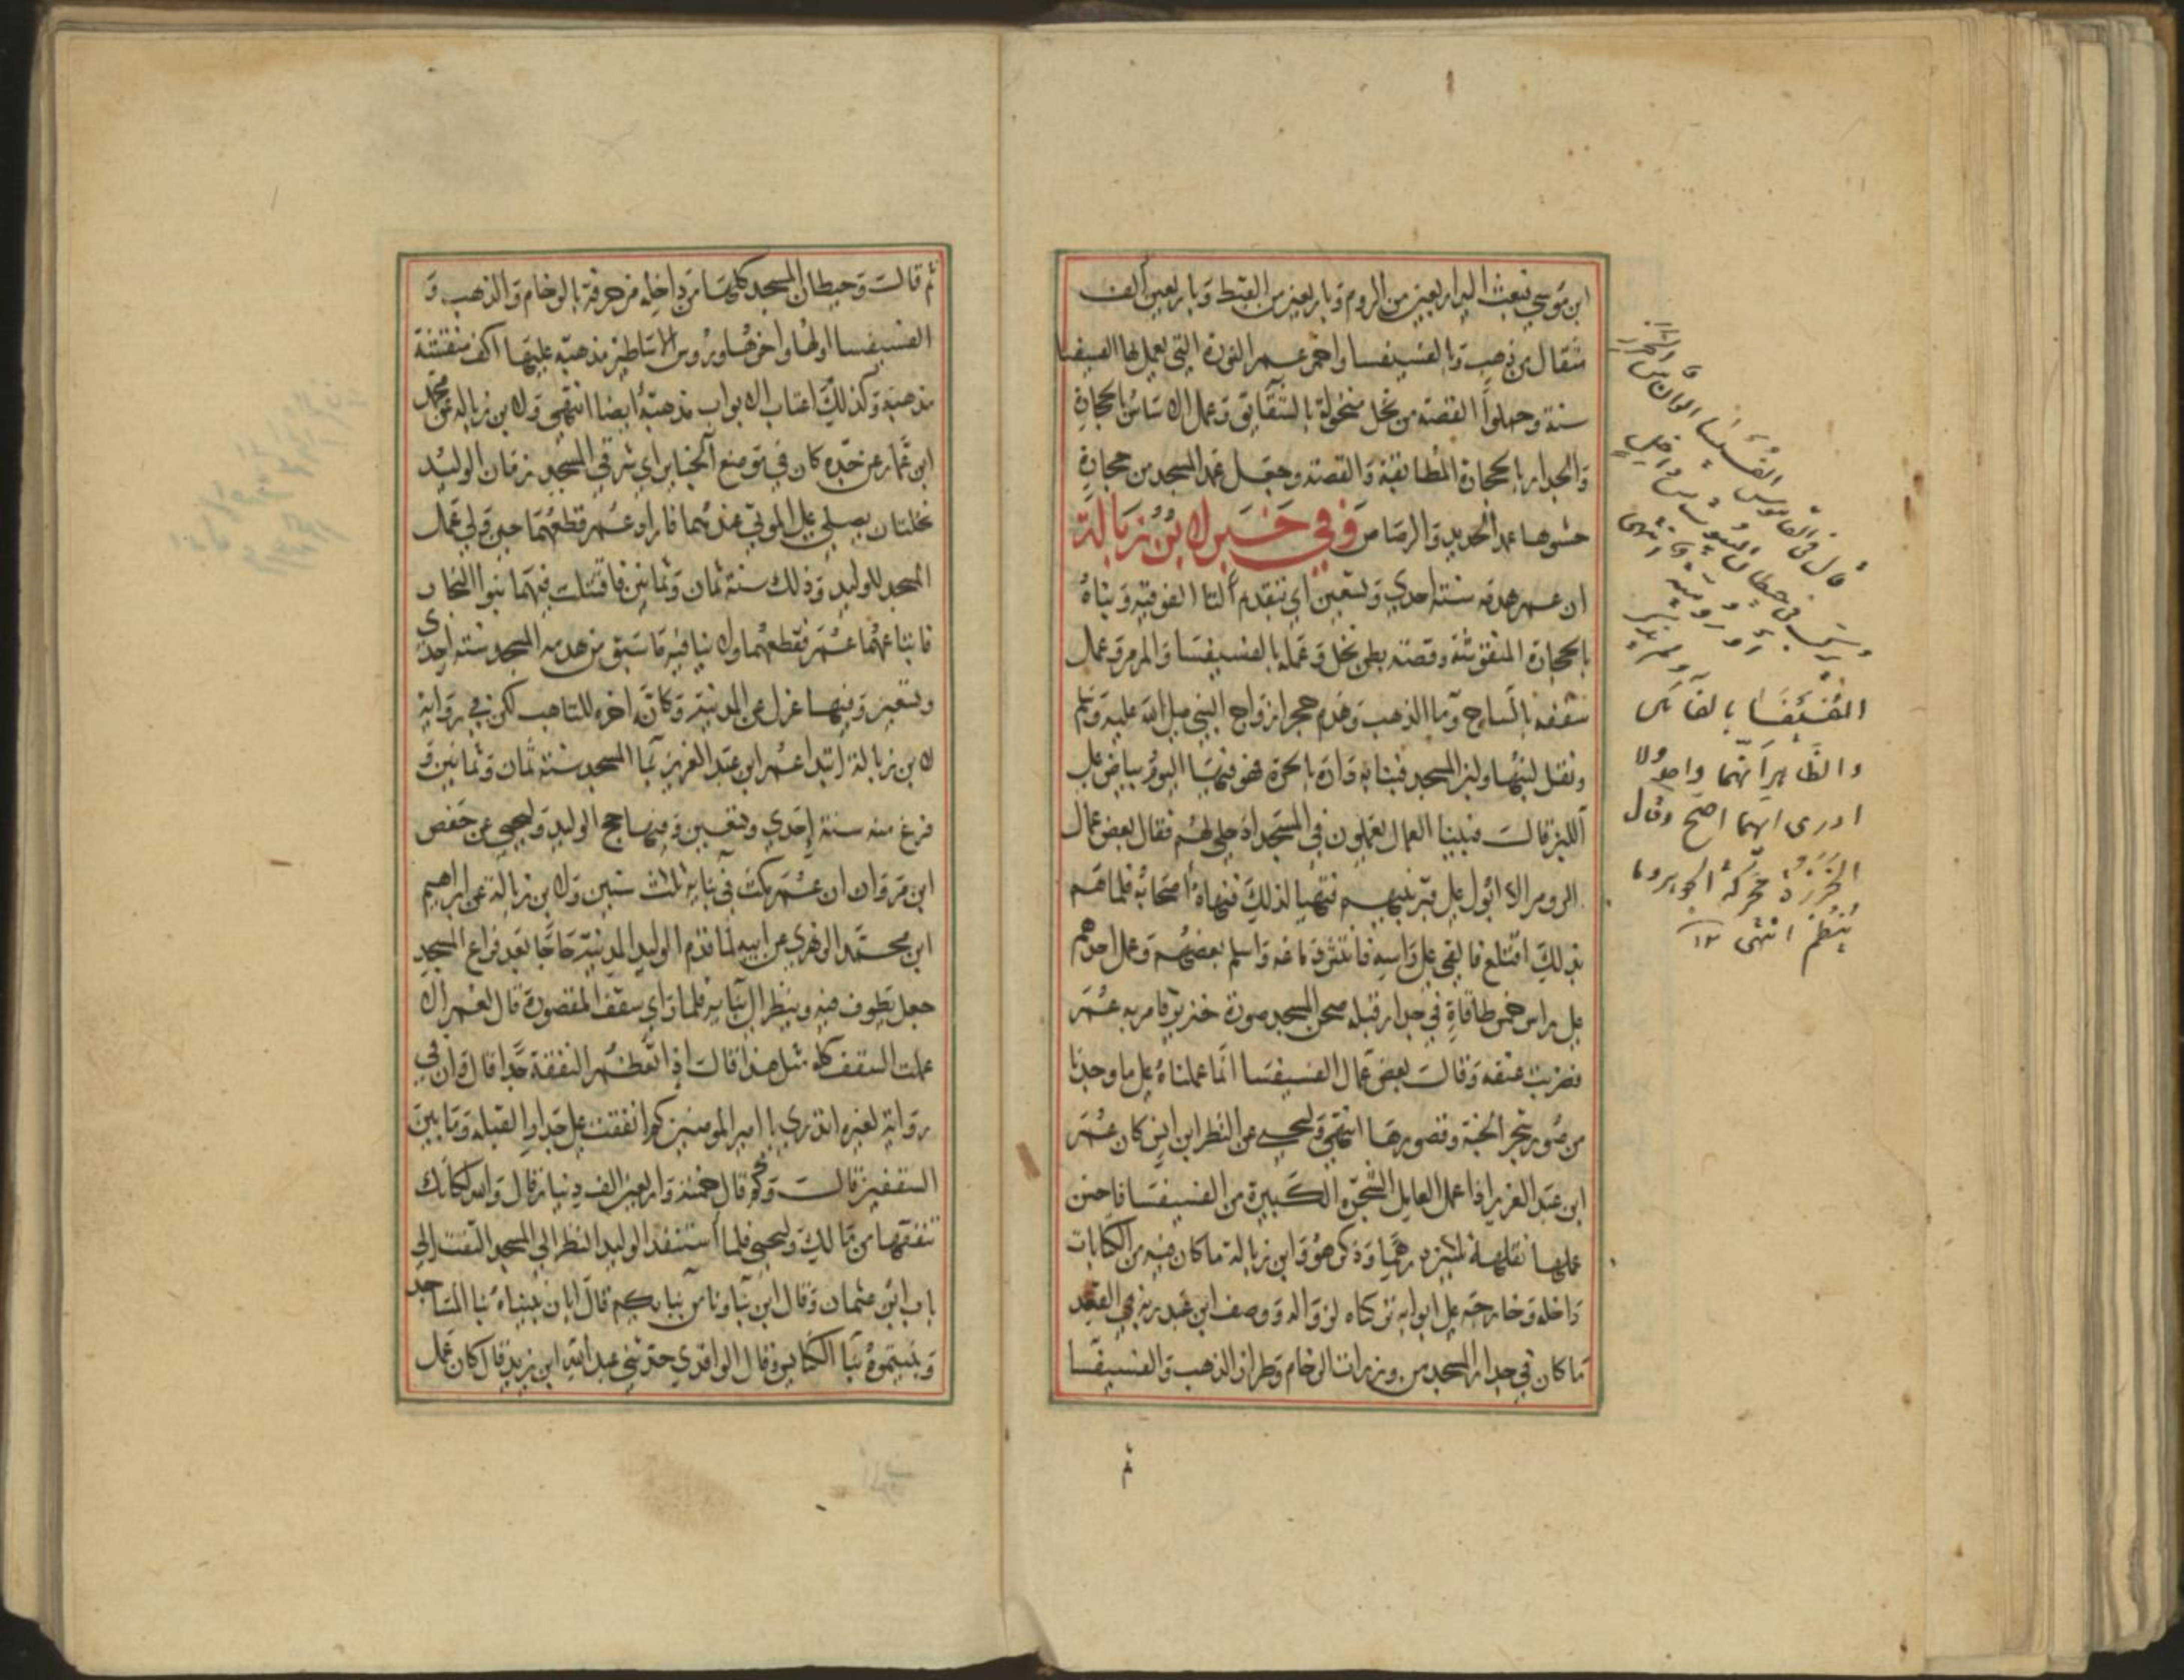 ابن موسى فبعث اليه اربعين من الروم و باربعين من القبط و باربعين الف
مثقال من ذهب و بالفسيفسا واخمر عمر النورة التي يعمل بها الفسيفسا
سنة وحملوا القصة من نخل منخولة بالشقايق و عمل الاساس بالحجارة
والجدار بالحجارة المطابقة والقصة وجعل عمد المسجد من حجارة
حشوها عمد الحديد والرصاص وفي خبر لابن زبالة
ان عمر هدمه سنة احدي وتسعين اي بتقدم التا الفوقية وبناه
بالحجارة المنقوشة وقصة بطن نخل وعمله بالفسيفسا والمرمر وعمل
سقفه بالساج وما الذهب وهدم حجر ازواج النبي صلى الله عليه وسلم
ونقل لبنها ولبن المسجد فبنا به داره بالحرة فهو فيها اليوم بياض على
اللبن قالت فبينا العمال يعملون في المسجد اذ خلي لهم فقال بعض عمال
الروم الا ابول على قبر نبيهم فتهيا لذلك فنهاه اصحابه فلما هم
بذلك اقتلع فالقي على راسه فانتثر دماغه واسلم بعضهم وعمل احدهم
على راس خمس طاقاة في جدار قبلة صحن المسجد صورة خنزير فامر به عمر
فضربت عنقه وقالت بعض عمال الفسيفسا انما عملناه على ما وجدنا
من صور شجر الجنة وقصورها انتهي وليحيى عن النظر ابن ابن كان عمر
ابن عبد العزيز اذا عمل العامل الشجرة الكبيرة من الفسيفسا فاحسن
عملها نقلهه ثلثين درهما وذكر هو وابن زبالة ما كان فيه من الكتابات
داخله وخارجه على ابوابه تركناه لزواله ووصف ابن عبد ربه في العقد
ما كان في جدار المسجد من وزرات الرخام وطراز الذهب والفسيفسا
ثم
قال في القاموس الفسيفسا الوان من الخرز
يركب في حيطان البيوت من داخل
او رومية انتهى
الفسيفسا بالفا
والظاهر انهما واحد ولا
ادرى ايهما اصح وقال
الخرزة محركة الجوهر وما
ينظم انتهى ١٢
ثم قالت وحيطان المسجد كلها من داخله مزخرفة بالرخام والذهب و
الفسيفسا اولها واخرها وروس الاساطين مذهبة عليها اكف منقشة
مذهبة وكذلك اعتاب الابواب مذهبة ايضا انتهى ولابن زبالة عن محمد
ابن عمار عن جده كان في موضع الجنايز اي شرقي المسجد زمان الوليد
نخلتان يصلى على الموتى عندهما فاراد عمر قطعهما حين ولي عمل
المسجد للوليد وذلك سنة ثمان وثمانين فاقتتلت فيهما بنوا النجار
فابتاعهما عمر فقطعهما ولا ينافيه ما سبق من هدمه المسجد سنة احدى
وتسعين وفيها عزل عن المدينة وكانه اخره للتاهب لكن في رواية
لابن زبالة ابتدا عمر ابن عبد العزيز بنا المسجد سنة ثمان وثمانين و
فرغ منه سنة احدي وتسعين وفيها حج الوليد وليحيى عن حفص
ابن مروان ان عمر مكث في بنايه ثلث سنين ولابن زبالة عن ابراهيم
ابن محمد الزهري عن ابيه لما قدم الوليد المدينة حاجا بعد فراغ المسجد
جعل يطوف فيه وينظر الى بنايه فلما راي سقف المقصورة قال لعمر الا
عملت السقف كله مثل هذا قالت اذا تعظم النفقة جدا قال وان في
رواية لغيره اتدري يا امير المومنين كم انفقت على جدار القبلة وما بين
السقفين قالت وكم قال خمسة واربعين الف دينار قال والله لكانك
تنفقها من مالك وليحيى فلما استنفد الوليد النظر الى المسجد التفت الى
ابان ابن عثمان وقال اين بناونا من بنايكم قال ابان بنيناه بنا المساجد
وبنيتموه بنا الكنايس وقال الواقدي حدثني عبد الله ابن يزيد قال كان عمل